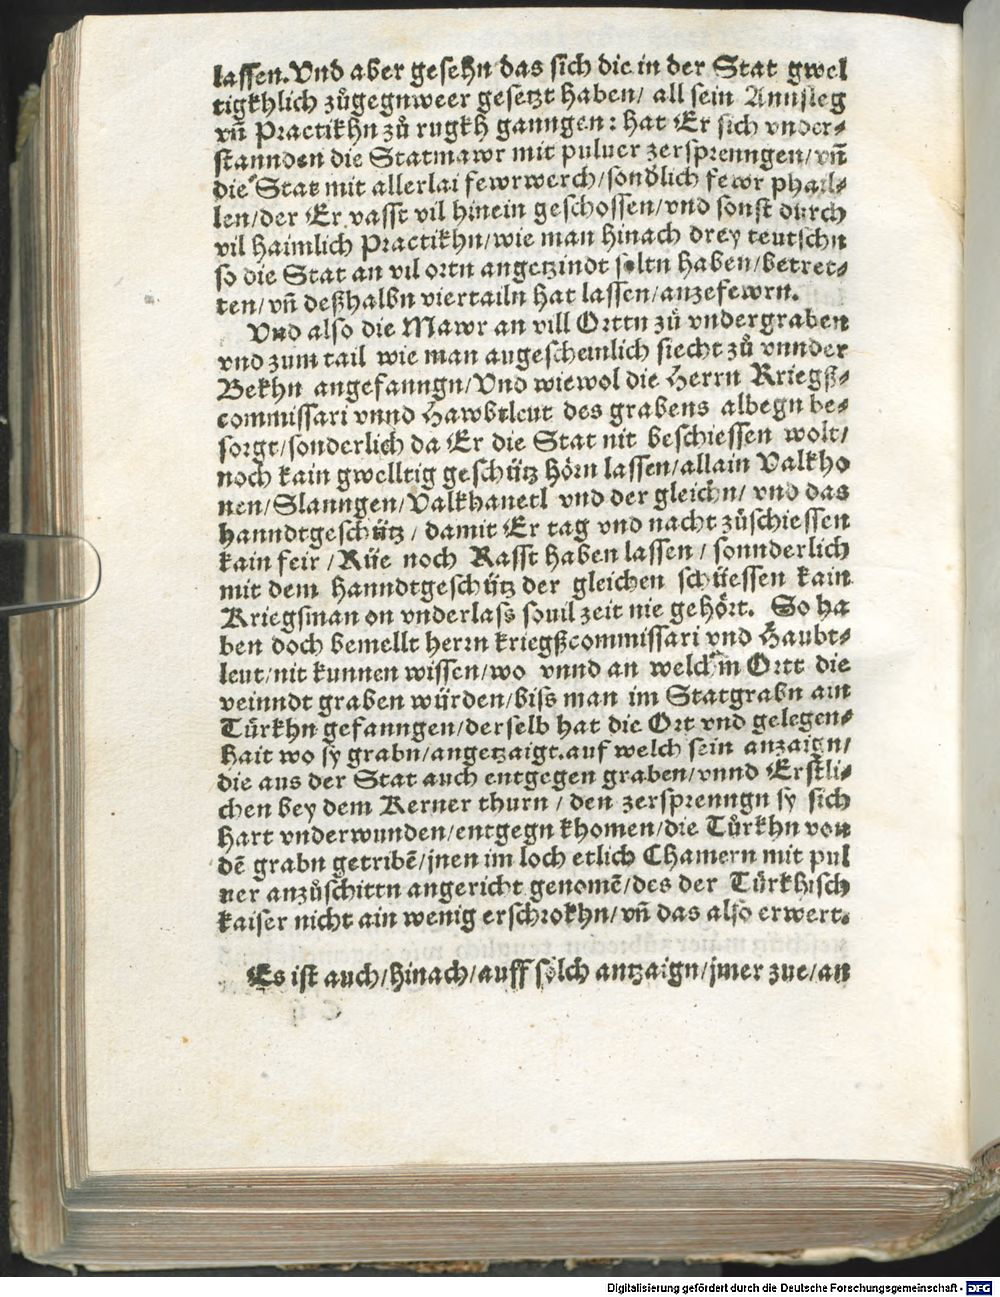 lassen. Vnd aber gesehn das sich die in der Stat gwel
tigkhlich zůgegnweer gesetzt haben/ all sein Annsleg
vñ Practikhn zů rugkh ganngen: hat Er sich vnder⸗
stannden die Statmawr mit puluer zersprenngen/vñ
die Stat mit allerlai fewrwerch/sonđlich fewr phail⸗
len/der Er vasst vil hinein geschossen/vnd sonst durch
vil haimlich Practikhn/wie man hinach drey teutschn
so die Stat an vil ortn angetzindt soltn haben/betret⸗
ten/vñ deßhalbn viertailn hat lassen/anzefewrn.
Vnd also die Mawr an vill Orttn zů vndergraben
vnd zum tail wie man augescheinlich siecht zů vnnder
Bekhn angefanngn/Vnd wiewol die Herrn Kriegß⸗
commissari vnnd Hawbtleut des grabens albegn be⸗
sorgt/sonderlich da Er die Stat nit beschiessen wolt/
noch kain gwelltig geschütz hörn lassen/allain Valkho
nen/Slanngen/Valkhanetl vnd der gleichn/ vnd das
hanndtgeschütz/ damit Er tag vnd nacht zůschiessen
kain feir/Rüe noch Rasst haben lassen/ sonnderlich
mit dem hanndtgeschütz der gleichen schüessen kain
Kriegsman on vnderlass souil zeit nie gehört. So ha
ben doch bemellt herrn kriegßcommissari vnd Haubt⸗
leut/nit kunnen wissen/wo vnnd an welchm Ortt die
veinndt graben würden/biss man im Statgrabn ain
Türkhn gefanngen/derselb hat die Ort vnd gelegen⸗
hait wo sy grabn/angetzaigt. auf welch sein anzaign/
die aus der Stat auch entgegen graben/vnnd Erstli⸗
chen bey dem Kerner thurn/ den zersprenngn sy sich
hart vnderwunden/entgegn khomen/die Türkhn von
dē grabn getribē/jnen im loch etlich Chamern mit pul
uer anzůschittn angericht genomē/des der Türkhisch
kaiser nicht ain wenig erschrokhn/vñ das also erwert.
Es ist auch/hinach/auff sölch antzaign/jmer zue/an
Digitalisierung gefördert durch die Deutsche Forschungsgemeinschaft - DFG